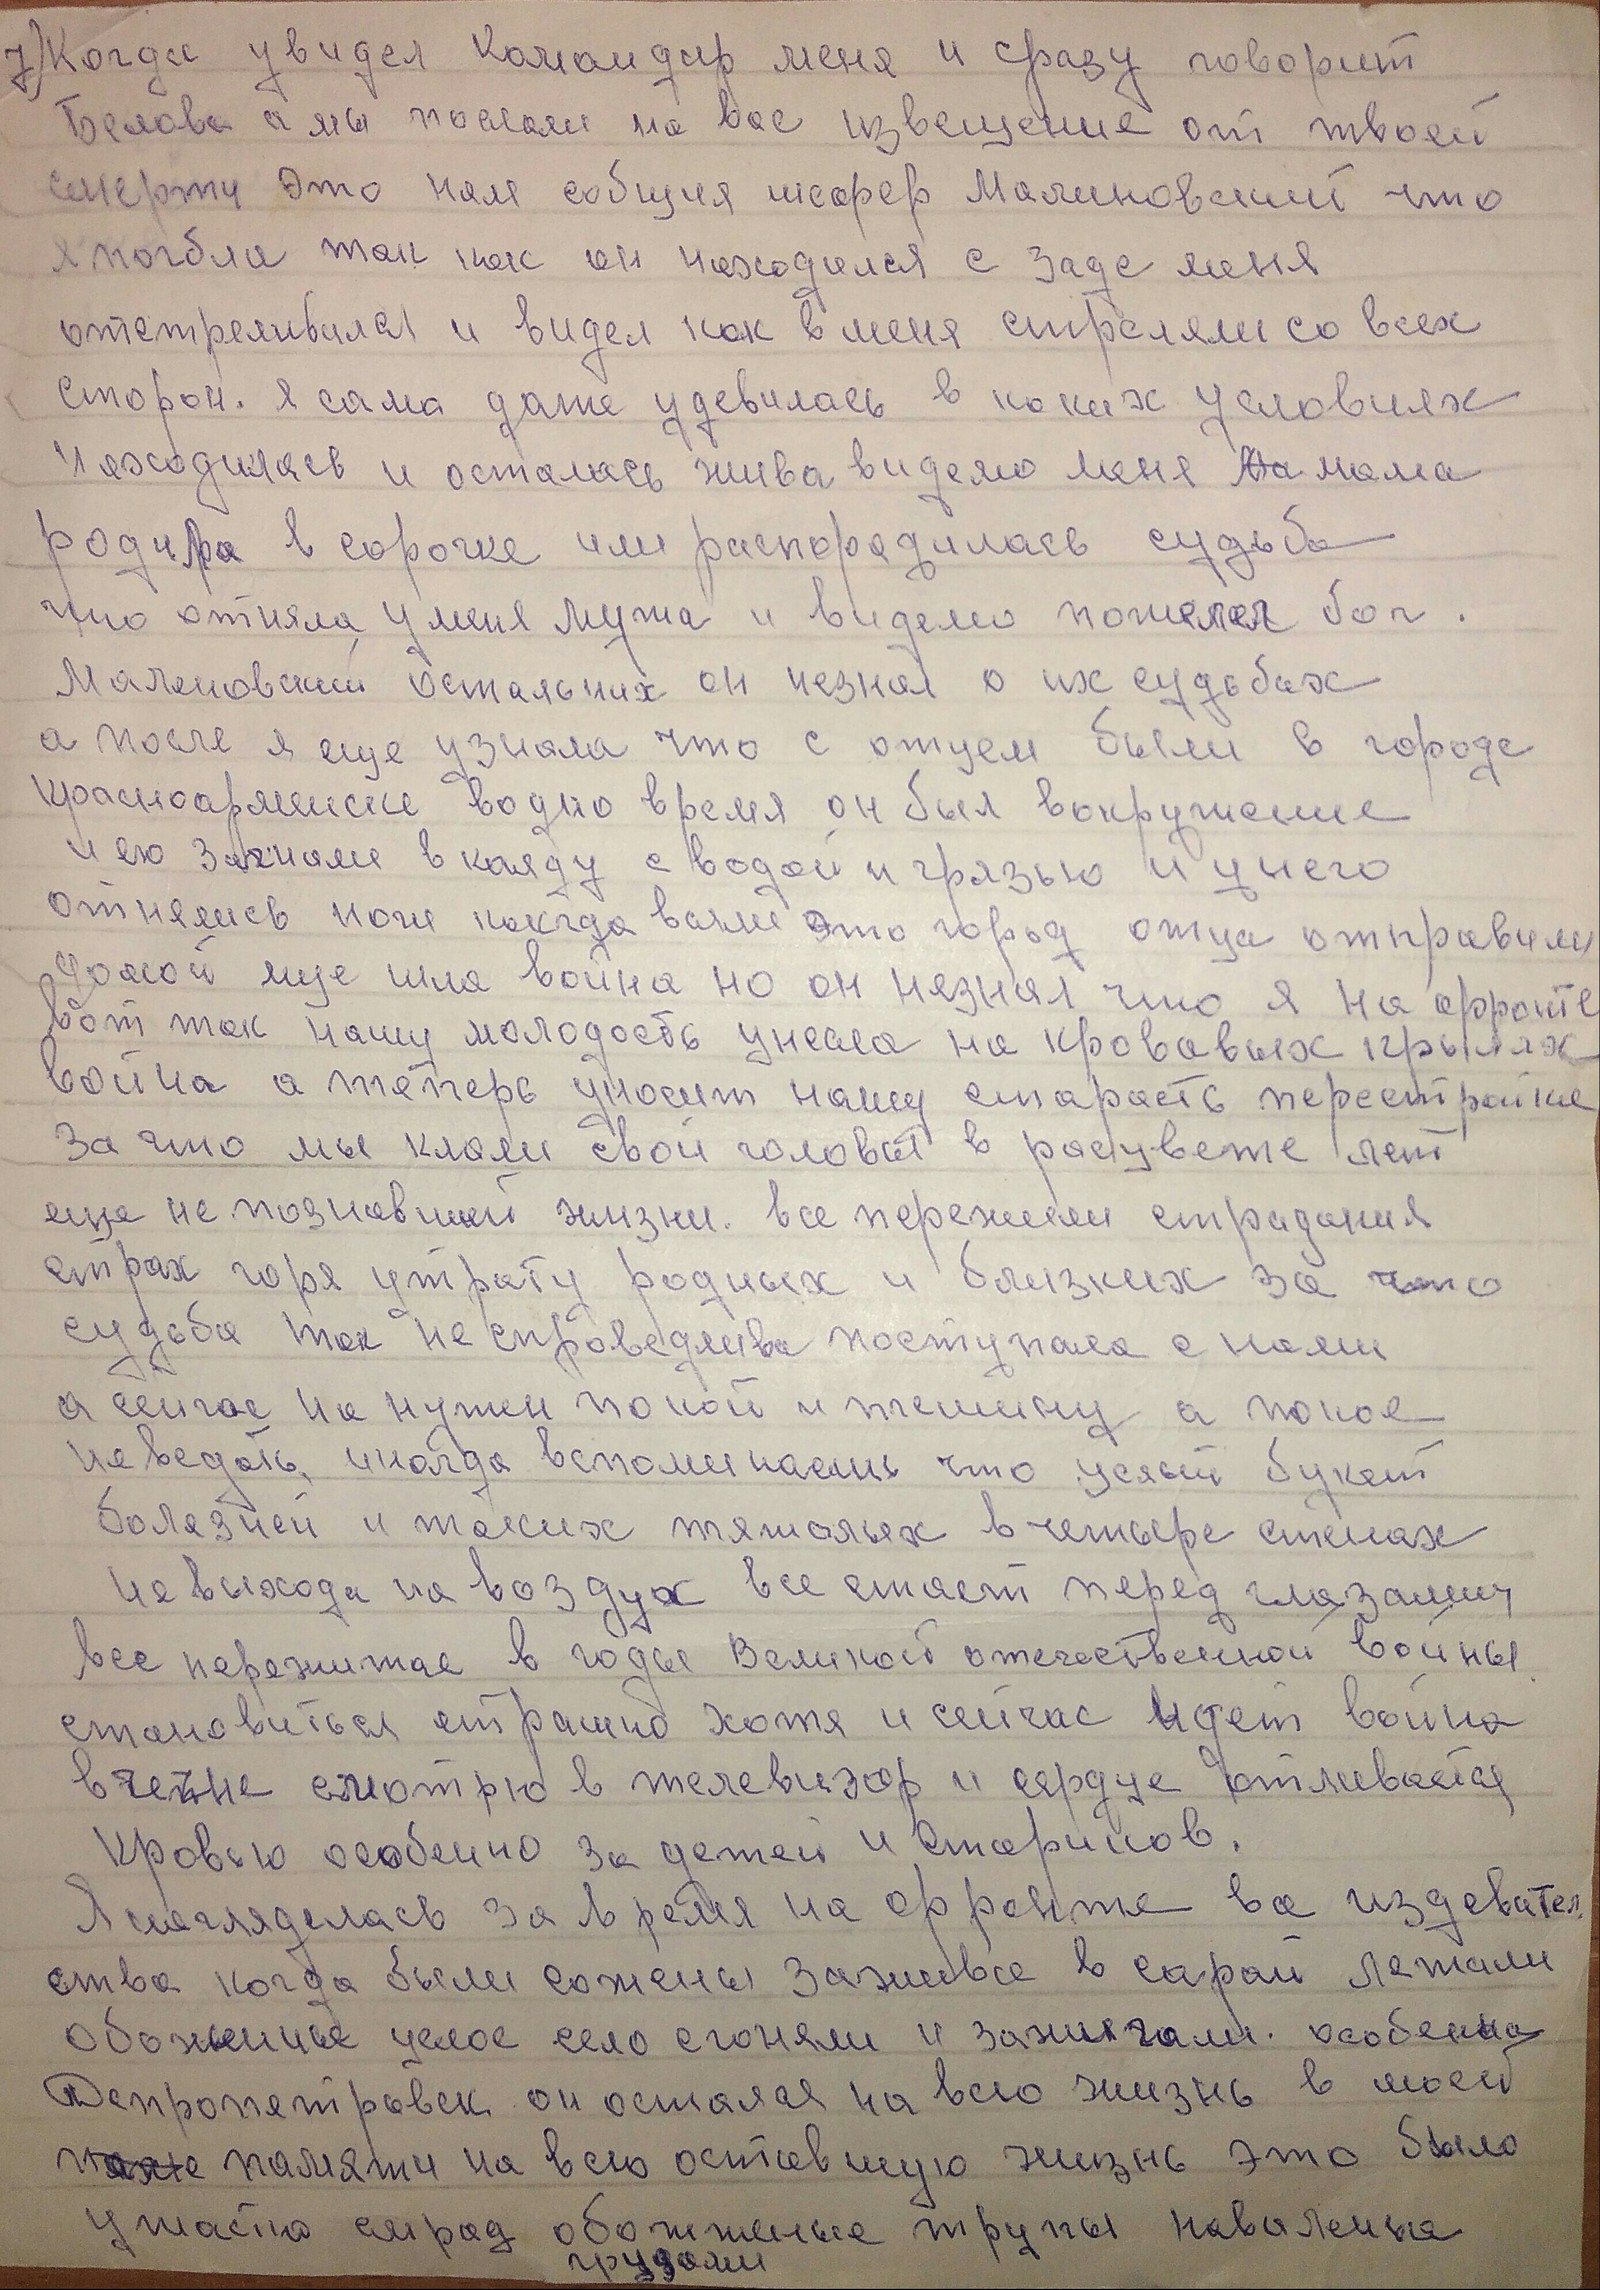 7) Когда увидел командир меня и сразу говорит
Белова а мы послали на вас извещение от твоей
смерти это нам собщил шофер Малиновский что
я погбла так как он находился с заде меня
отстреливался и видел как в меня стреляли со всех
сторон. я сама даже удевилась в каких условиях
находилась и осталась жива видемо меня мама
родила в сорочке или распорядилась судьба
что отняла у меня мужа и видемо пожелел бог.
Малиновский остальних он незнал о их судьбах
а после я еще узнала что с отцем были в городе
красноармейске водно время он был вокружение
и его загнали в каяду с водой и грязью и у него
отнялись ноги когда взяли это город отца отправили
домой еще шла война но он незнал что я на фронте
вот так нашу молодость унесла на кровавых крылях
война а теперь уносит нашу старость перестройка
за что мы клали свои головы в расцвете лет
еще не познавшей жизни. все пережили страдания
страх горя утрату родных и близких за что
судьба так не справедлива поступала с нами
а сейчас на нужен покой и тишину а покоя
не ведать, иногда вспоминаешь что целый букет
болезней и таких тяжолых в четыре стенах
не выхода на воздух все стает перед глазами
все пережитае в годы Великой отечественной войны.
становиться страшно хотя и сейчас идет война
в чечне смотрю в телевизор и сердце отливается
кровью особенно за детей и стариков.
Я нагляделась за время на фронте во издевател
ства когда были сожены заживо в сарай лежали
обоженые целое село сгоняли и зажигали. особенно
Депропетровск он остался на всю жизнь в моей
памяти на всю оставшую жизнь это было
ужастно смрад обожженые трупы навалены
грудами